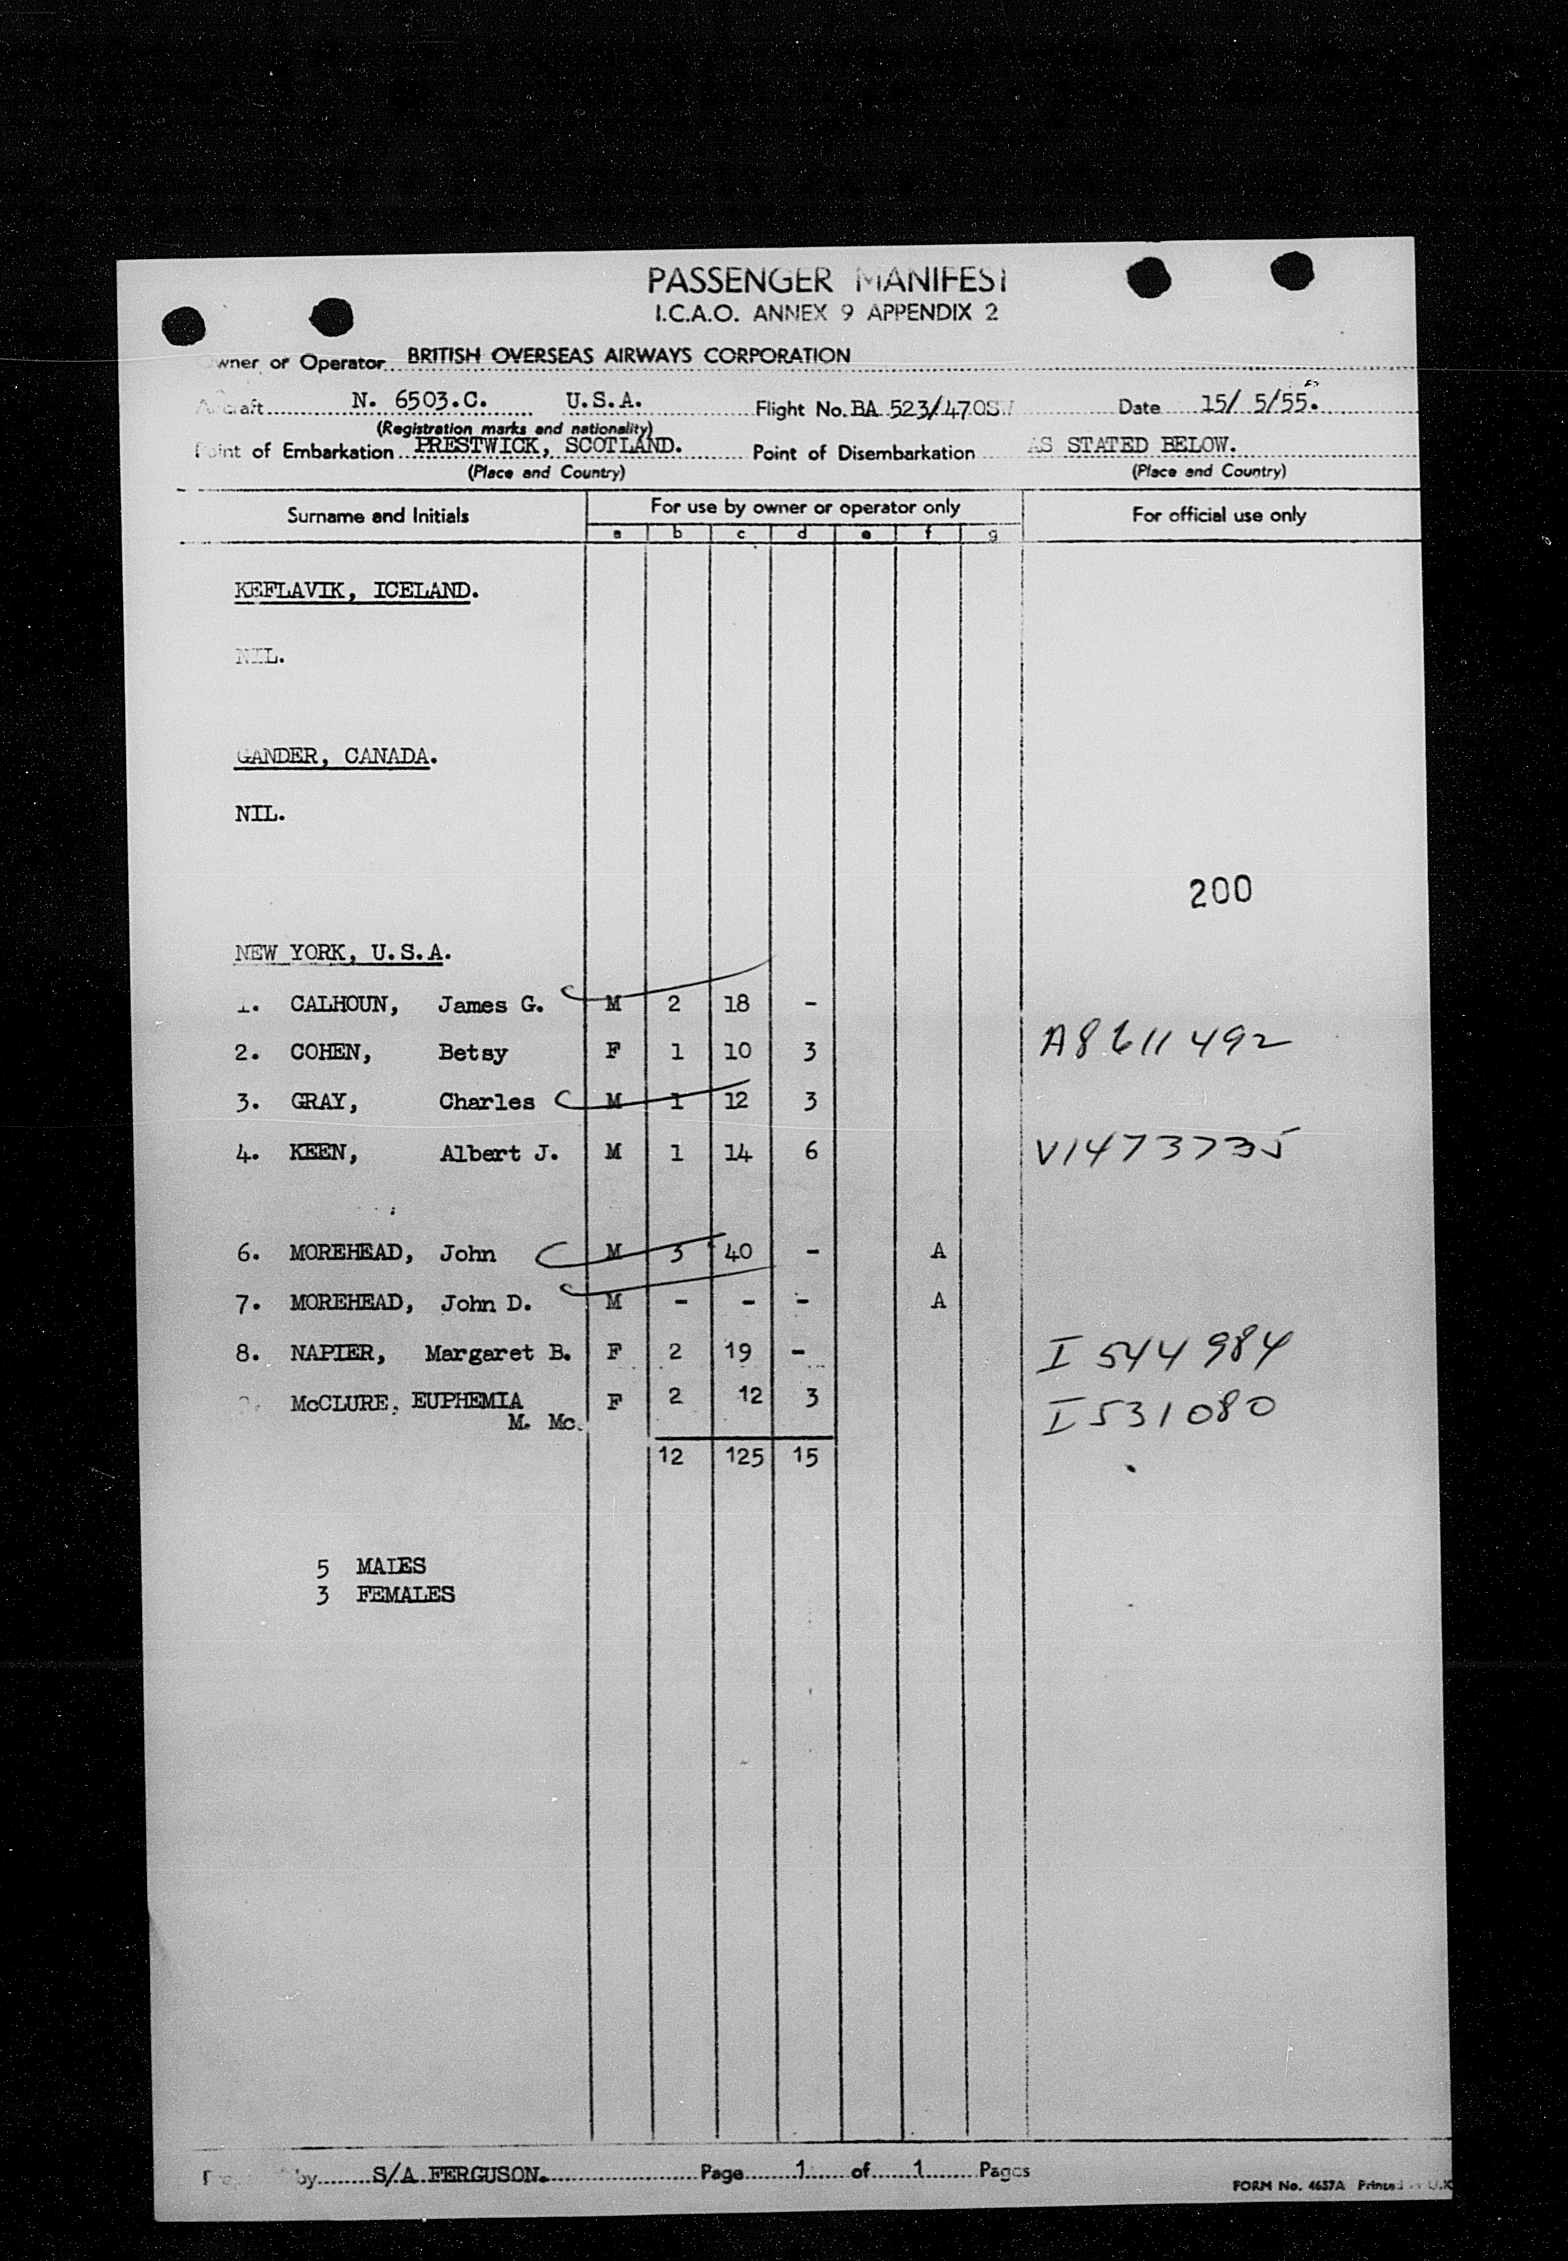 PASSENGER MANIFEST
I.C.A.O. ANNEX 9 APPENDIX 2
Owner or Operator BRITISH OVERSEAS AIRWAYS CORPORATION
Aircraft N. 6503.C. U.S.A. Flight No. BA 523/470 Date 15/ 5/55.
(Registration marks and nationality)
Point of Embarkation PRESTWICK, SCOTLAND. Point of Disembarkation AS STATED BELOW.
(Place and Country) (Place and Country)
Surname and Initials For use by owner or operator only For official use only
a b c d e f g
KEFLAVIK, ICELAND.
NIL.
GANDER, CANADA.
NIL.
200
NEW YORK, U.S.A.
1. CALHOUN, James G. M 2 18 -
2. COHEN, Betsy F 1 10 3 A8611492
3. GRAY, Charles M 1 12 3
4. KEEN, Albert J. M 1 14 6 V1473735
6. MOREHEAD, John M 3 40 - A
7. MOREHEAD, John D. M - - - A
8. NAPIER, Margaret B. F 2 19 - I 544984
McCLURE, EUPHEMIA F 2 12 3 I531080
M. Mc.
12 125 15
5 MALES
3 FEMALES
Prepared by S/A FERGUSON. Page 1 of 1 Pages
FORM No. 4657A Printed in U.K